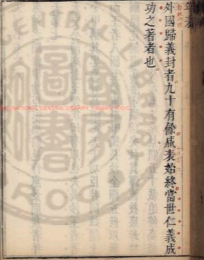 外國歸義封者九十有餘咸表始終當世仁義成
功之著者也